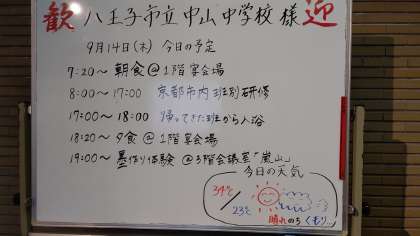 歓 八王子市立中山中学校様 迎
9月14日(木) 今日の予定
7:20〜 朝食@1階宴会場
8:00〜17:00 京都市内班別研修
17:00〜18:00 帰ってきた班から入浴
18:20〜夕食@1階宴会場
19:00〜墨作り体験@3階会議室「嵐山」
今日の天気
34℃/23℃
晴れのちくもり